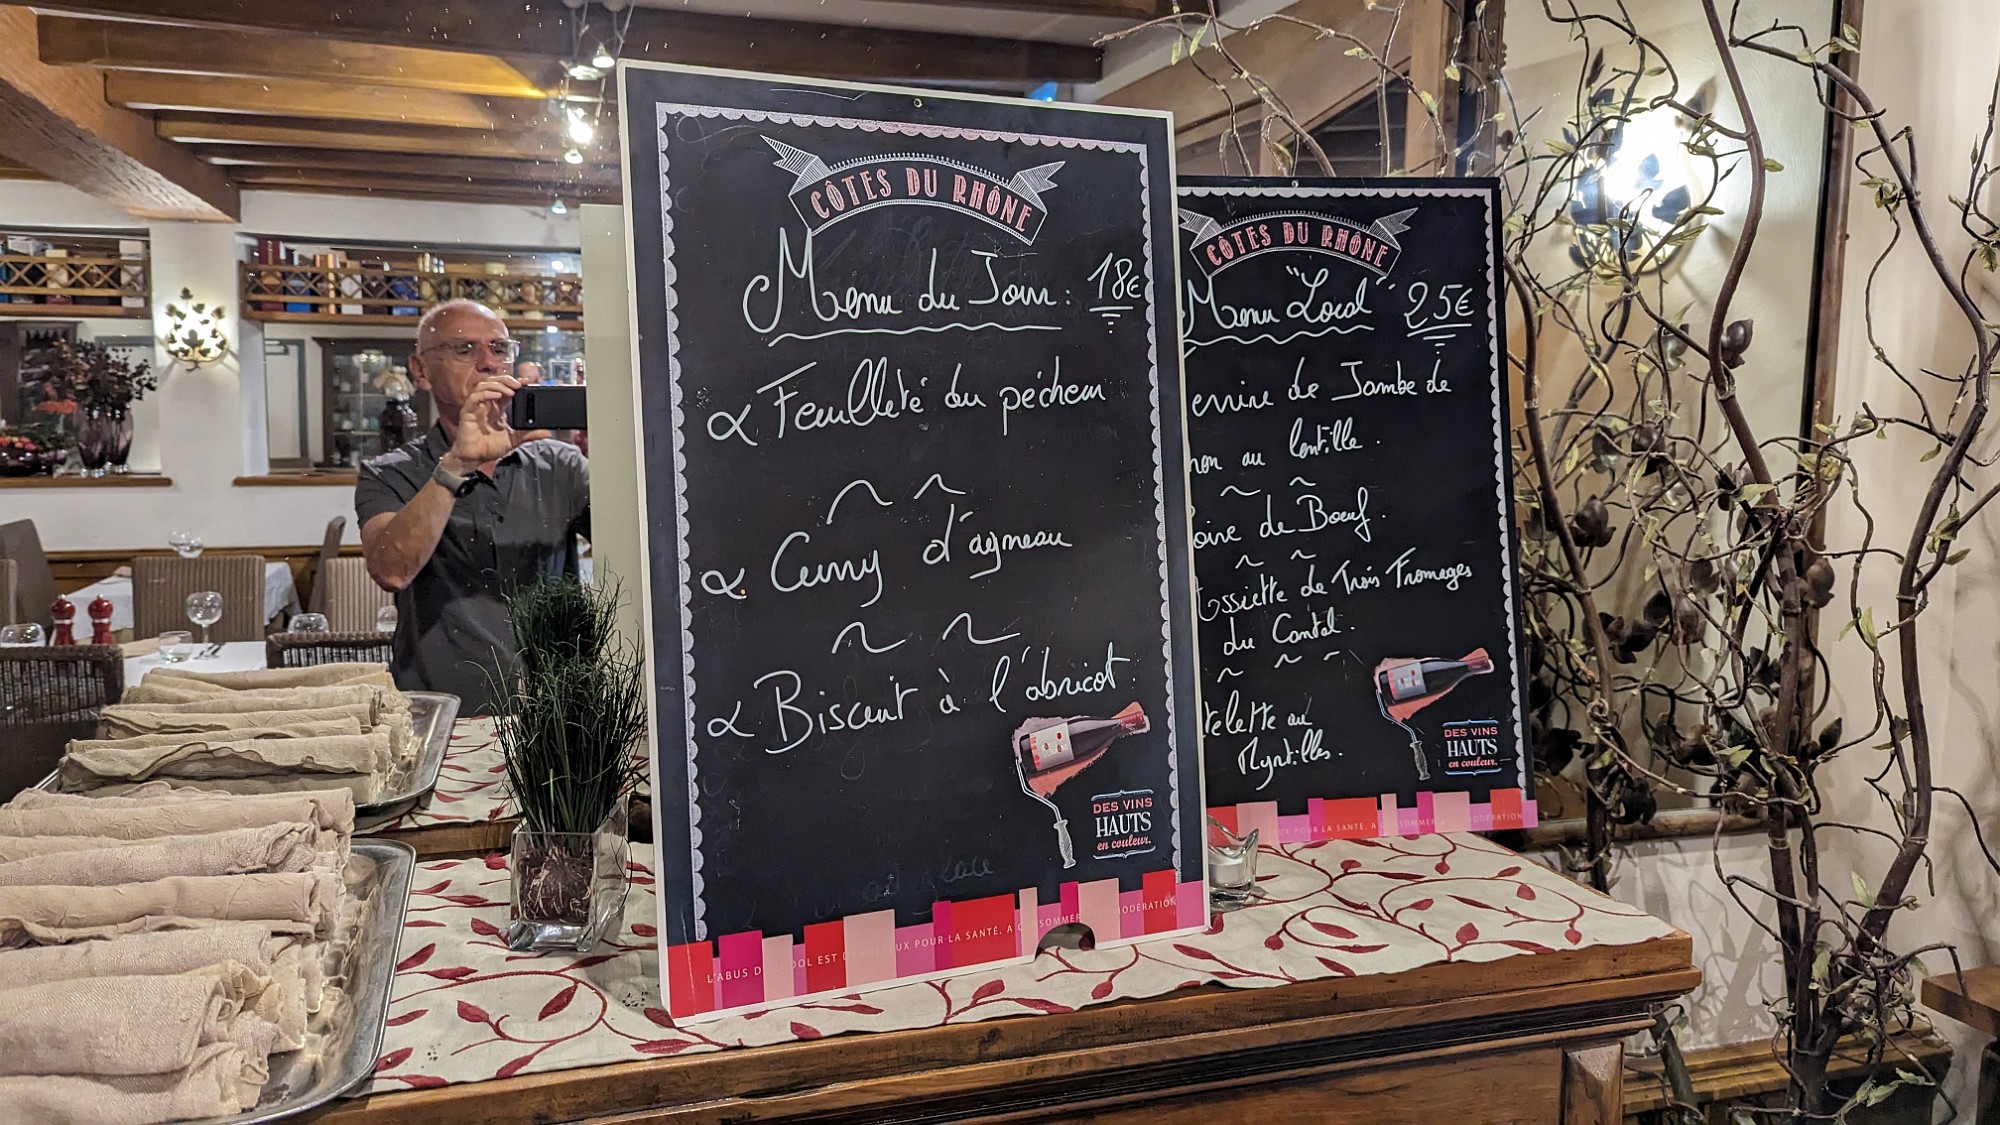 CÔTES DU RHÔNE
Menu du Jour : 18€
Feuilleté du pécheur
Curry d'agneau
Biscuit à l'abricot.
DES VINS
HAUTS
en couleur.
L'ABUS D'ALCOOL EST DANGEREUX POUR LA SANTÉ. A CONSOMMER AVEC MODÉRATION
CÔTES DU RHÔNE
Menu "Local" 25€
de Jambe de
au lentille.
de Boeuf.
de Trois Fromages
du Cantal.
au
Myrtilles.
DES VINS
HAUTS
en couleur.
POUR LA SANTÉ. A CONSOMMER MODÉRATION